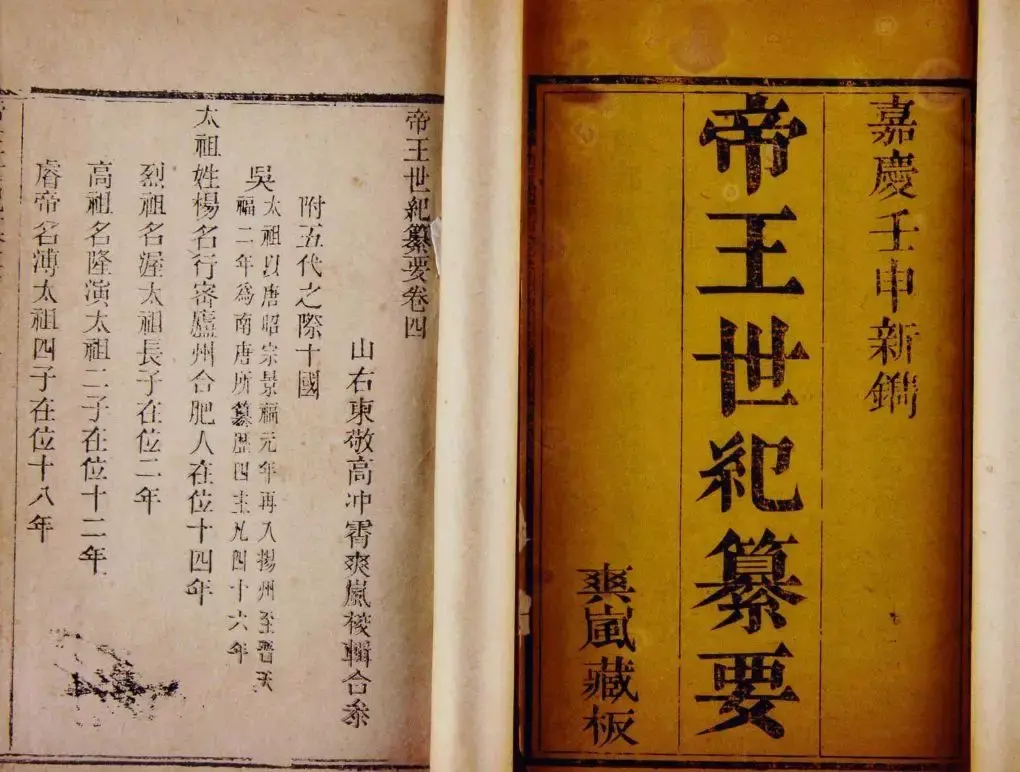 嘉慶壬申新鐫
帝王世紀纂要
爽嵐藏板
帝王世紀纂要卷四
山右東敬高冲霄爽嵐稜輯合叅
附五代之際十國
吳太祖以唐昭宗景福元年再入揚州至晋天
福二年為南唐所篡歷四主凡四十六年
太祖姓楊名行密廬州合肥人在位十四年
烈祖名渥太祖長子在位二年
高祖名隆演太祖二子在位十二年
睿帝名溥太祖四子在位十八年